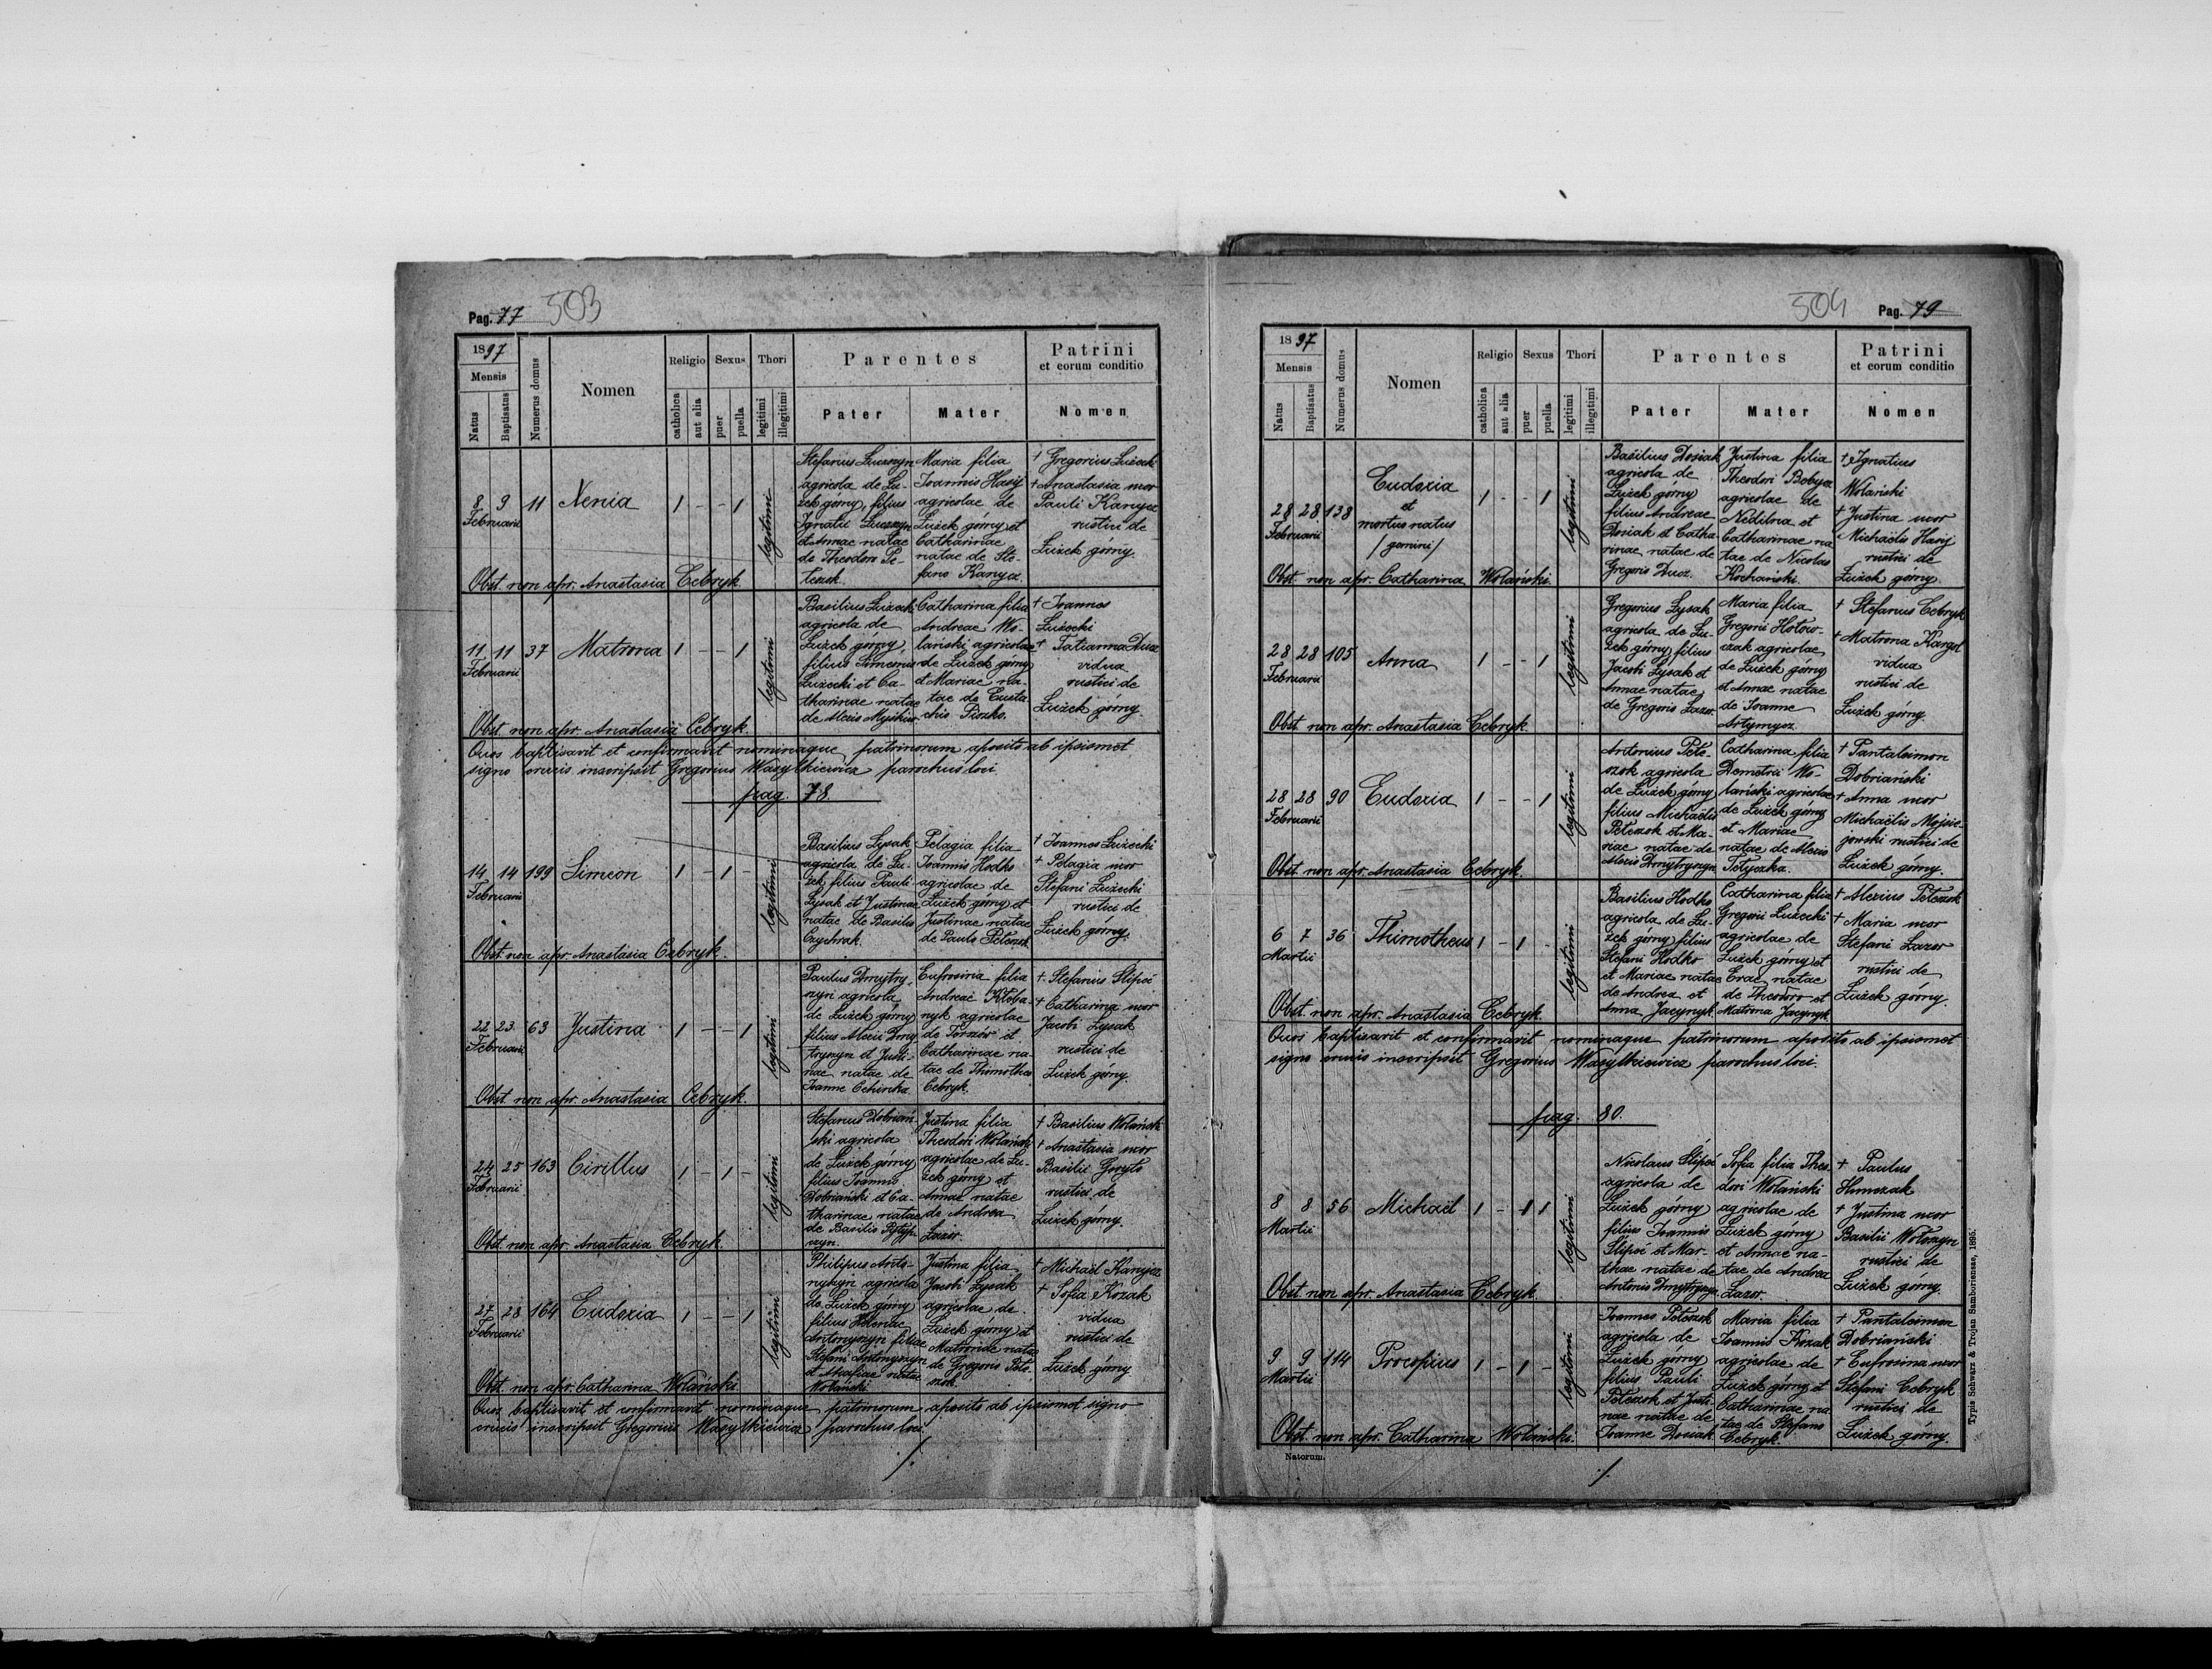 Pag. 77 503
1897
Mensis
Natus
Baptisatus
Numerus domus
Nomen
Religio
catholica
aut alia
Sexus
puer
puella
Thori
legitimi
illegitimi
Parentes
Pater
Mater
Patrini
et eorum conditio
Nomen
8 9 11 Xenia 1 - - 1
Februarii
legitimi
agricola de Lu-
żek górny, filius
et Annae natae
de Theodoro Pe-
teczok.
Maria filia
Joannis Hasij
agricolae de
Łużek górny et
Catharinae
natae de Ste-
fano Kanycz.
† Gregorius Łużecki
† Anastasia uxor
Pauli Kanycz
rustici de
Łużek górny.
Obst. non apr. Anastasia Cebryk
11 11 37 Matrona 1 - - 1
Februarii
legitimi
Basilius Łużecki
agricola de
Łużek górny,
filius Simeonis
Łużecki et Ca-
tharinae natae
de Alexio
Catharina filia
Andreae Wo-
lański agricolae
de Łużek górny
et Mariae na-
tae de Eusta-
chio
† Joannes
Łużecki
† Tatianna Ducz
vidua
rustici de
Łużek górny.
Obst. non apr. Anastasia Cebryk.
Quos baptisavit et confirmavit nominaque patrinorum aposito ab ipsismet
signo crucis inscripsit Gregorius Wasylkiewicz parochus loci.
pag. 78.
14 14 199 Simeon 1 - 1 -
Februarii
legitimi
Basilius Lysak
agricola de Lu-
żek filius Pauli
Lysak et Justinae
natae de Basilio
Czychrak.
Pelagia filia
Joannis Hodko
agricolae de
Łużek górny et
Justinae natae
de Paulo Peteczok.
† Joannes Łużecki
† Pelagia uxor
Stefani Łużecki
rustici de
Łużek górny.
Obst. non apr. Anastasia Cebryk.
22 23 63 Justina 1 - - 1
Februarii
legitimi
Paulus Dmytry-
szyn agricola
de Łużek górny
filius Alexii Dmy-
tryszyn et Justi-
nae natae de
Joanne
Eufrosina filia
Andreae
nyk agricolae
de et
Catharinae na-
tae de Thimotheo
Cebryk.
† Stefanus Slipeć
† Catharina uxor
Jacobi Lysak
rustici de
Łużek górny.
Obst. non apr. Anastasia Cebryk.
24 25 163 Cirillus 1 - 1 -
Februarii
legitimi
Stefanus Dobriań-
ski agricola
de Łużek górny
filius Joannis
Dobriański et Ca-
tharinae natae
de Basilio
Justina filia
Theodori Wolański
agricolae de Lu-
żek górny et
Annae natae
de Andrea
Lazor.
† Basilius Wolański
† Anastasia uxor
Basilii
rustici de
Łużek górny.
Obst. non apr. Anastasia Cebryk.
27 28 164 Eudoxia 1 - - 1
Februarii
legitimi
Philipus Anto-
nyszyn agricola
de Łużek górny
filius Helenae
Antonyszyn filiae
Stefani Antonyszyn
et natae
Wolański
Justina filia
Jacobi Lysak
agricolae de
Łużek górny et
Matronae natae
de Gregorio Pete-
czok.
† Michael Kanycz
† Sofia Kozak
vidua
rustici de
Łużek górny
Obst. non apr. Catharina Wolański.
Quos baptisavit et confirmavit nominaque patrinorum aposito ab ipsismet signo
crucis inscripsit Gregorius Wasylkiewicz parochus loci.
504 Pag. 79
1897
Mensis
Natus
Baptisatus
Numerus domus
Nomen
Religio
catholica
aut alia
Sexus
puer
puella
Thori
legitimi
illegitimi
Parentes
Pater
Mater
Patrini
et eorum conditio
Nomen
28 28 138 Eudoxia 1 - - 1
Februarii
et
mortus natus
/gemini/
legitimi
Basilius Dosiak
agricola de
Łużek górny
filius Andreae
Dosiak et Catha-
rinae natae de
Gregorio Ducz.
Justina filia
Theodori
agricolae de
Nedilna et
Catharinae na-
tae de Nicolao
Kochański.
† Ignatius
Wolański
† Justina uxor
Michaelis Hasij
rustici de
Łużek górny.
Obst. non apr. Catharina Wolański.
28 28 105 Anna 1 - - 1
Februarii
legitimi
Gregorius Lysak
agricola de Lu-
żek górny filius
Jacobi Lysak et
Annae natae
de Gregorio Lazor.
Maria filia
Gregorii Hołow-
czak agricolae
de Łużek górny
et Annae natae
de Joanne
Artymycz.
† Stefanus Cebryk
† Matrona Kargol
vidua
rustici de
Łużek górny.
Obst. non apr. Anastasia Cebryk.
28 28 90 Eudoxia 1 - - 1
Februarii
legitimi
Antonius Pete-
czok agricola
de Łużek górny
filius Michaelis
Peteczok et Ma-
riae natae de
Alexio Dmytryszyn
Catharina filia
Demetrii Wo-
lański agricolae
de Łużek górny
et Mariae
natae de Alexio
† Pantaleimon
Dobriański
† Anna uxor
Michaelis Mojsie-
jowski rustici de
Łużek górny.
Obst. non apr. Anastasia Cebryk.
6 7 36 Thimotheus 1 - 1 -
Martii
legitimi
Basilius Hodko
agricola de Lu-
żek górny filius
Stefani Hodko
et Mariae natae
de Andrea et
Anna Jacynyk.
Catharina filia
Gregorii Łużecki
agricolae de
Łużek górny et
Evae natae
de Theodoro et
Matrona Jacynyk
† Alexius Peteczok
† Maria uxor
Stefani Lazor
rustici de
Łużek górny.
Obst. non apr. Anastasia Cebryk.
Quos baptisavit et confirmavit nominaque patrinorum aposito ab ipsismet
signo crucis inscripsit Gregorius Wasylkiewicz parochus loci.
pag. 80.
8 8 56 Michael 1 - 1 1
Martii
legitimi
Nicolaus Slipeć
agricola de
Łużek górny
filius Joannis
Slipeć et Mar-
thae natae de
Antonio Dmytryszyn
Sofia filia Theo-
dori Wolański
agricolae de
Łużek górny
et Annae na-
tae de Andrea
Lazor.
† Paulus
† Justina uxor
Basilii Wołoszyn
rustici de
Łużek górny.
Obst. non apr. Anastasia Cebryk.
9 9 114 Procopius 1 - 1 -
Martii
legitimi
Joannes Peteczok
agricola de
Łużek górny
filius Pauli
Peteczok et Justi-
nae natae de
Joanne Dosiak
Maria filia
Joannis Kozak
agricolae de
Łużek górny et
Catharinae na-
tae de Stefano
Cebryk.
† Pantaleimon
Dobriański
† Eufrosina uxor
Stefani Cebryk
rustici de
Łużek górny.
Obst. non apr. Catharina Wolański.
Natorum.
Typis Schwarz & Trojan Samboriensae, 1895.